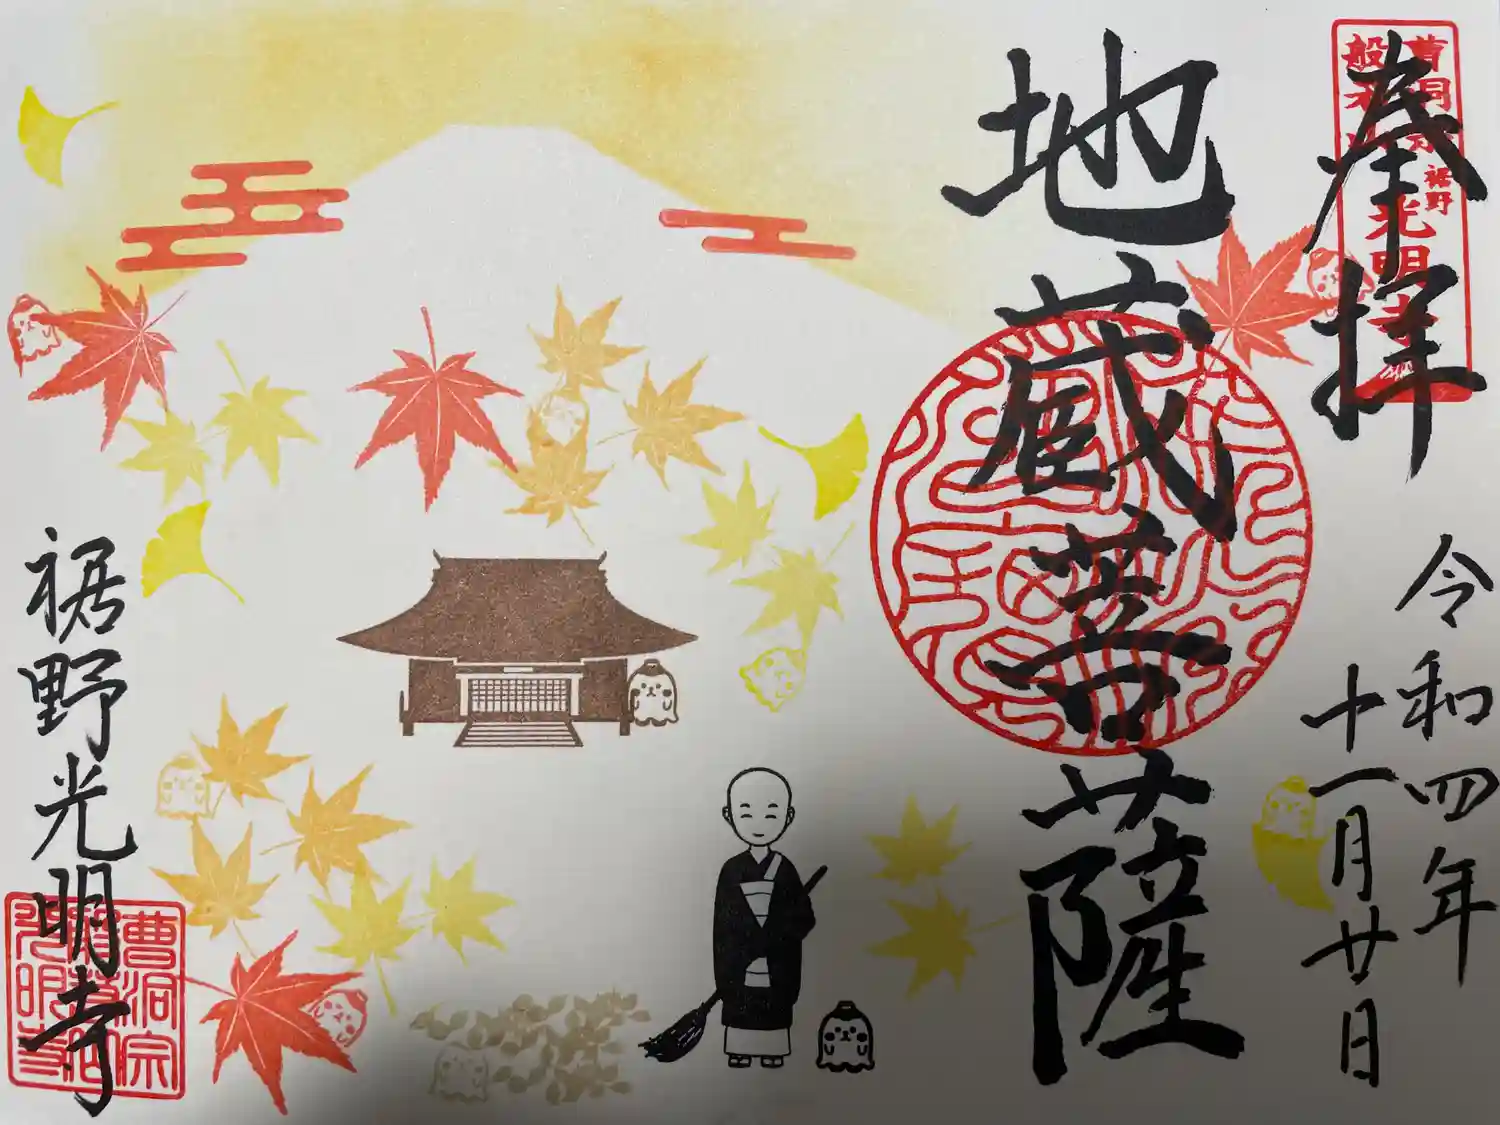 奉拝
令和四年
十一月廿日
地蔵菩薩
裾野光明寺
曹洞宗
裾野
光明寺
曹洞宗
光明寺